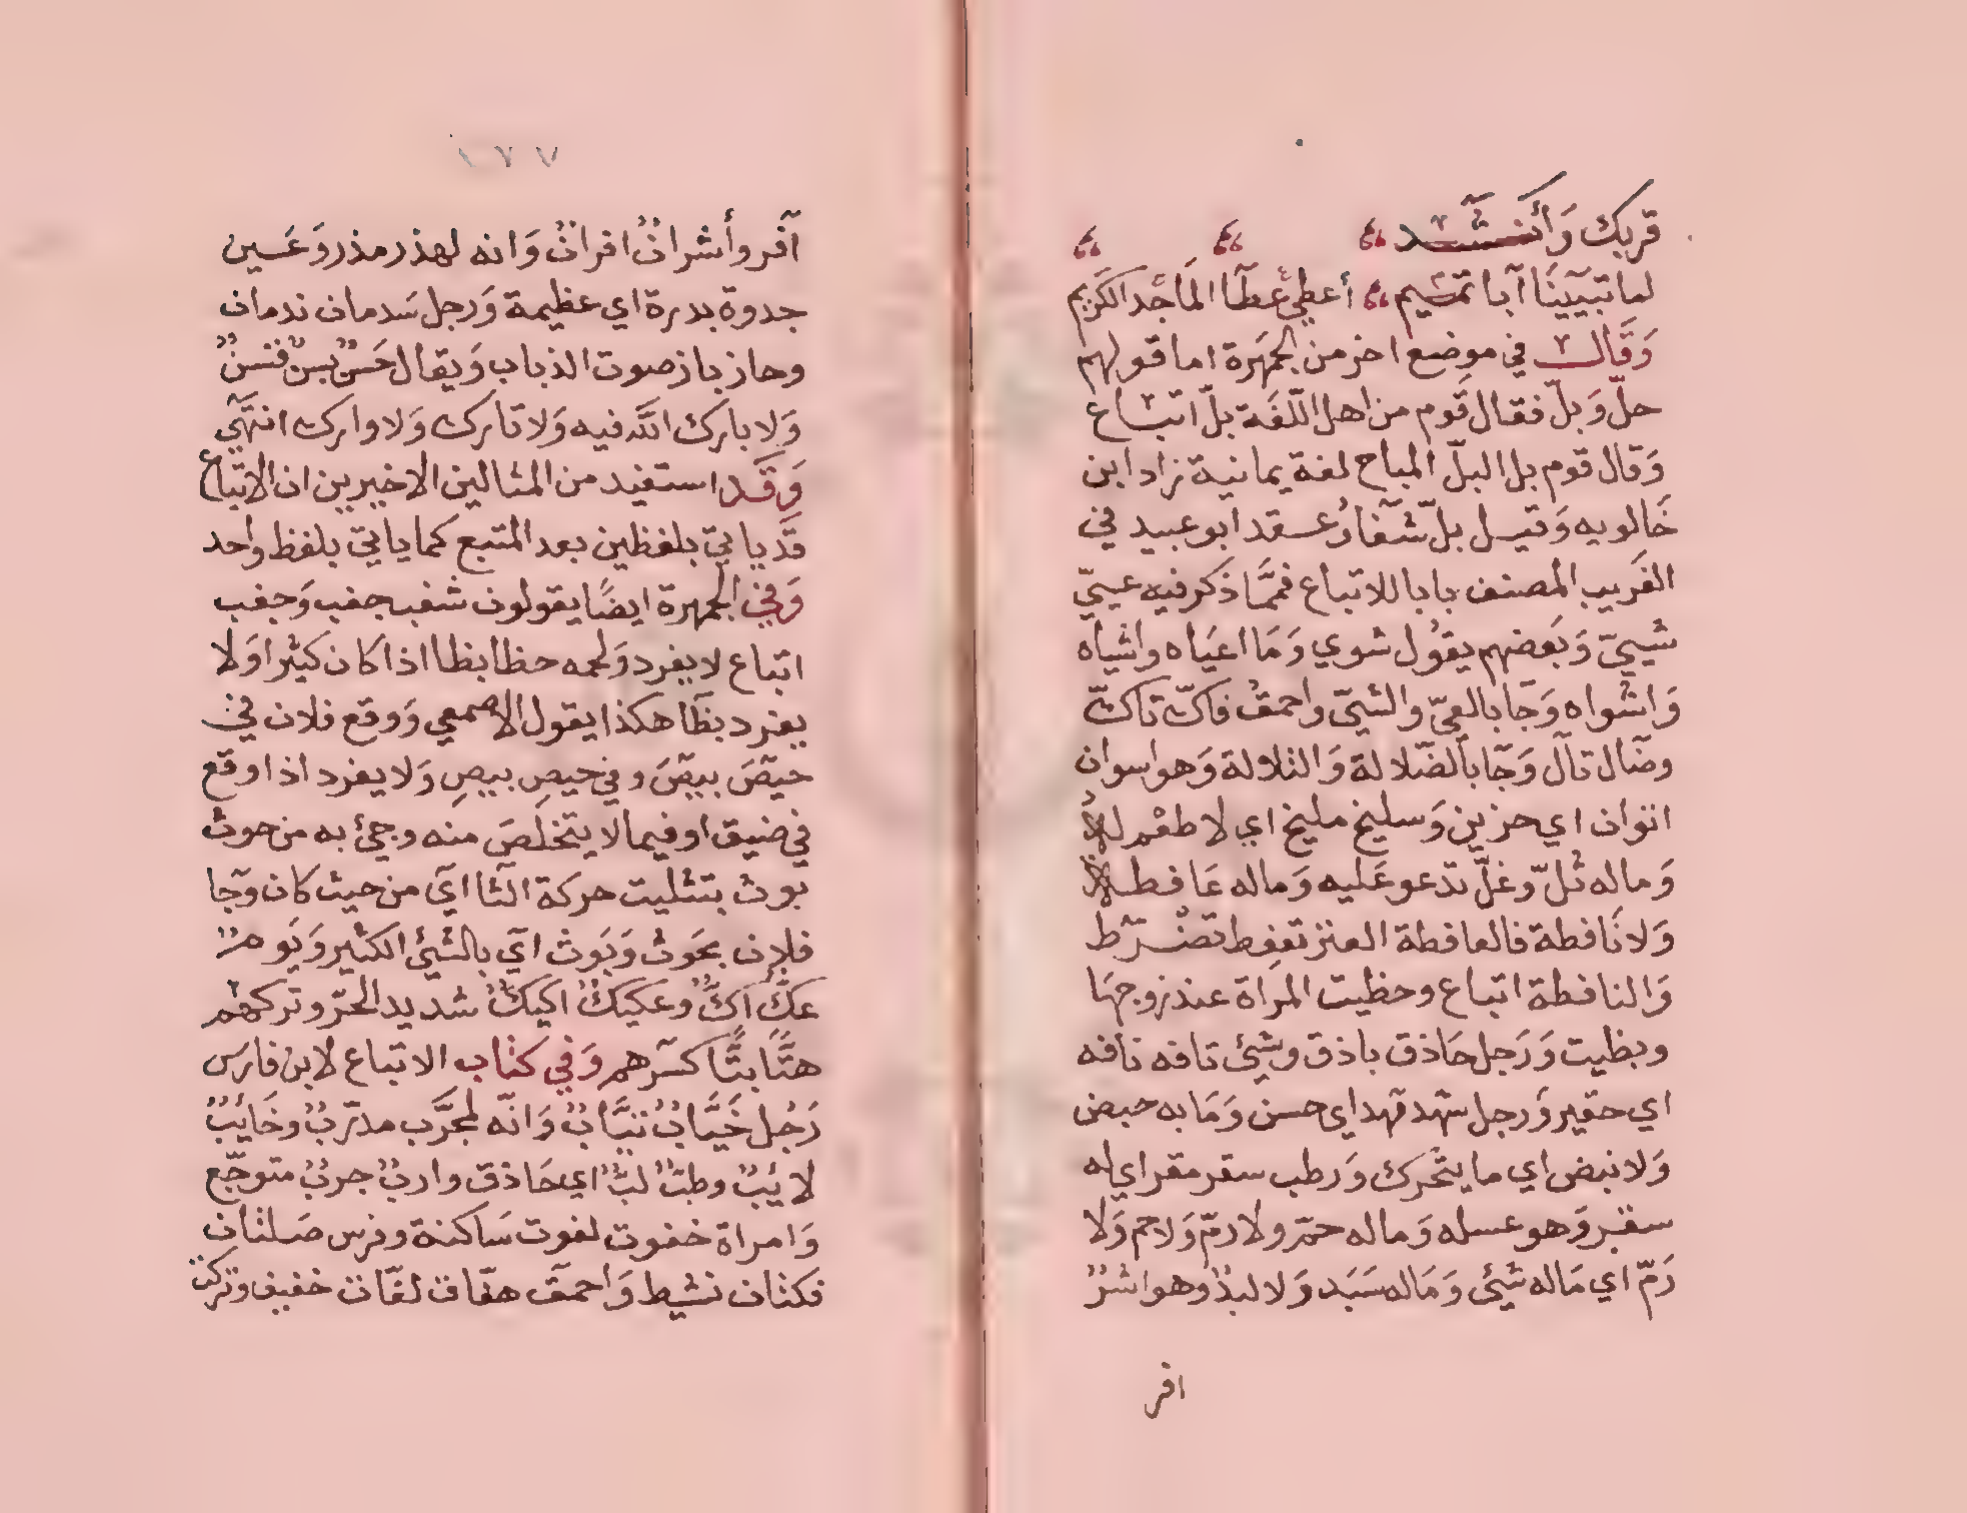 قربك وَأنشد
لما تبيينا أبا تميم أعطى عطا الماجد الكريم
وَقَال في موضع اخر من الجمهَرة اما قولهم
حلّ وَبلّ فقال قَوم من اهل اللّغَة بلّ اتباع
وَقال قوم بل البلّ المباح لغة يمانية زاد ابن
خَالويه وَقيل بلّ شفاوُعقد ابو عبيد في
الغَريب المصنف بابا للاتباع فممّا ذكر فيه عييّ
شييّ وَبَعضهم يقوُل شوي وَمَا اعيَاه واشياه
وَاشواه وَجَا بالعيّ والشيّ واحمق فاكّ تاكّ
وضّال تالّ وَجَا بالضّلالة وَالتلالة وَهو اسوان
اتوان اي حزين وَسليخ مليخ اي لا طعْم له
وَماله ثلّ وغلّ تدعو عَليه وَماله عَافطة
وَلا نَافطة فالعافطة العنز تعفِط تضرّط
وَالنافطة اتباع وحظيت المرأة عند زوجهَا
وبظيت وَرَجل حَاذق باذق وشيئ تافه نافه
اي حقير وَرجل سهد قهد اي حسن وَمَا به حبض
وَلا نبض اي ما يتحرك وَرطب سقر مقر اي له
سقر وَهو عسله وَماله حمّ ولا رمّ وَلا حم وَلا
رَمّ اي مَاله شيئ وَمَاله سَبَد وَلا لبدٌ وهو اشرٌ
افر
١٧٧
آفر وأشرانٌ افرانٌ وَانه لهذر مذر وَعَين
جدرة بدرة اي عظيمة وَرجل سَدمان ندمان
وحاز باز صوت الذباب وَيقال حَسنٌ بسنٌ قسنٌ
وَلا بارك اللّه فيه وَلا تارك وَلا وارك انتهَى
وَقَد استفيد من المثالين الاخيرين ان الاتباع
قَد ياتي بلفظين بعد المتبع كما ياتي بلفظ واحد
وَفي الجمهرة ايضًا يقولون شغب جغب وَجغب
اتباع لا يفرد وَلحمه حظا بظا اذا كان كثيرا وَلا
يفرد بظَا هكذا يقول الاصمعي وَوقع فلان في
حيصَ بيصَ وفي حيصِ بيصِ وَلا يفرد اذا وقع
في ضيق او فيما لا يتخلصَ منه وجئ به من حوث
بوث بتثليت حركة الثا اي من حيث كان وَجا
فلان بحَوث وَبَوث اي بالشيئ الكثير وَيَوم
عكٌّ أكٌّ وعكيكٌ اكيكٌ شديد الحرّ وتركهم
هتًّا بتًّا كسَرهم وَفي كتاب الاتباع لابن فارَس
رَجُل خَيَّابٌ تيَّابٌ وَانّه لمجرَّب مدرّبٌ وخَايبٌ
لايبٌ وطبٌّ لبٌّ اي حَاذق واربٌ جربٌ متوجّع
وَامراة خفوت لفوت سَاكنة وفرس صَلتان
فكتان نشيط وَاحمق هفّات لفّات خفيف وتركت